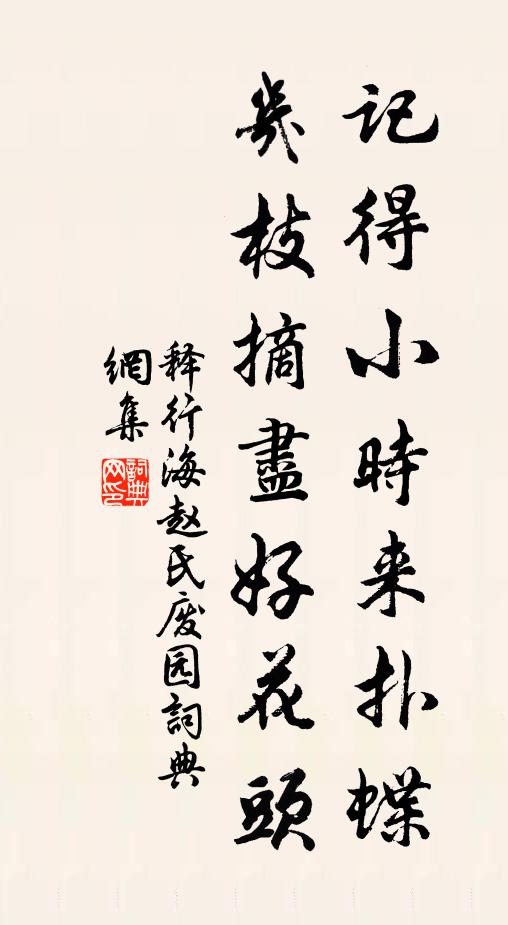 记得小時来扑蝶
几枝摘盡好花頭
释行海赵氏废园詞典
網集
詞典
网印